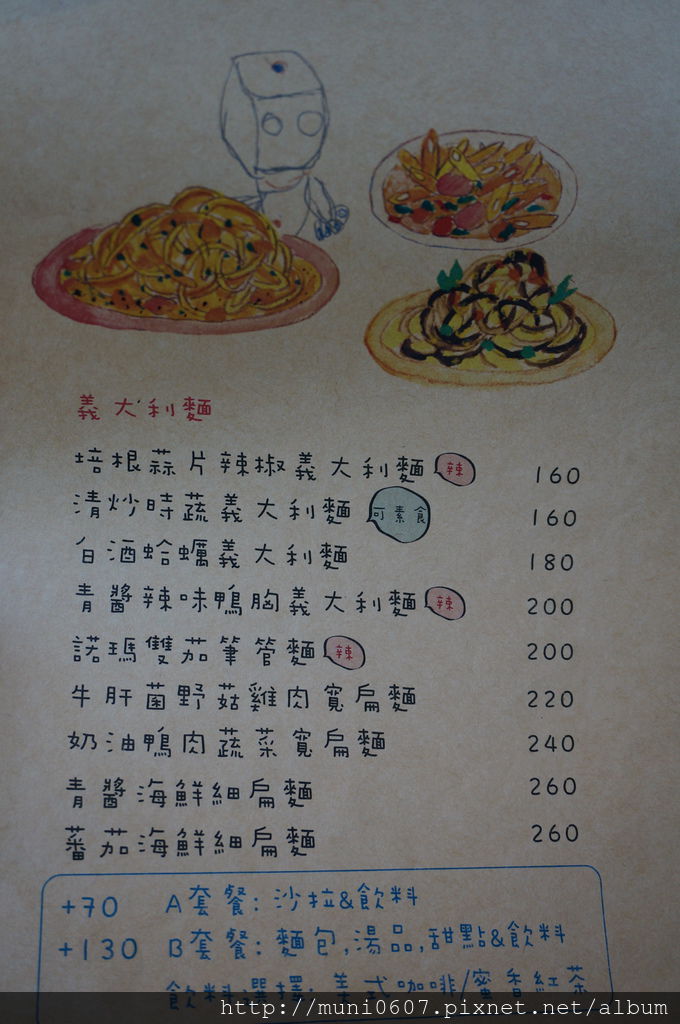 義大利麵
培根蒜片辣椒義大利麵 辣 160
清炒時蔬義大利麵 可素食 160
白酒蛤蠣義大利麵 180
青醬辣味鴨胸義大利麵 辣 200
諾瑪雙茄筆管麵 辣 200
牛肝菌野菇雞肉寬扁麵 220
奶油鴨肉蔬菜寬扁麵 240
青醬海鮮細扁麵 260
蕃茄海鮮細扁麵 260
+70 A套餐: 沙拉&飲料
+130 B套餐: 麵包,湯品,甜點&飲料
飲料選擇: 美式咖啡/蜜香紅茶
http://muni0607.pixnet.net/album